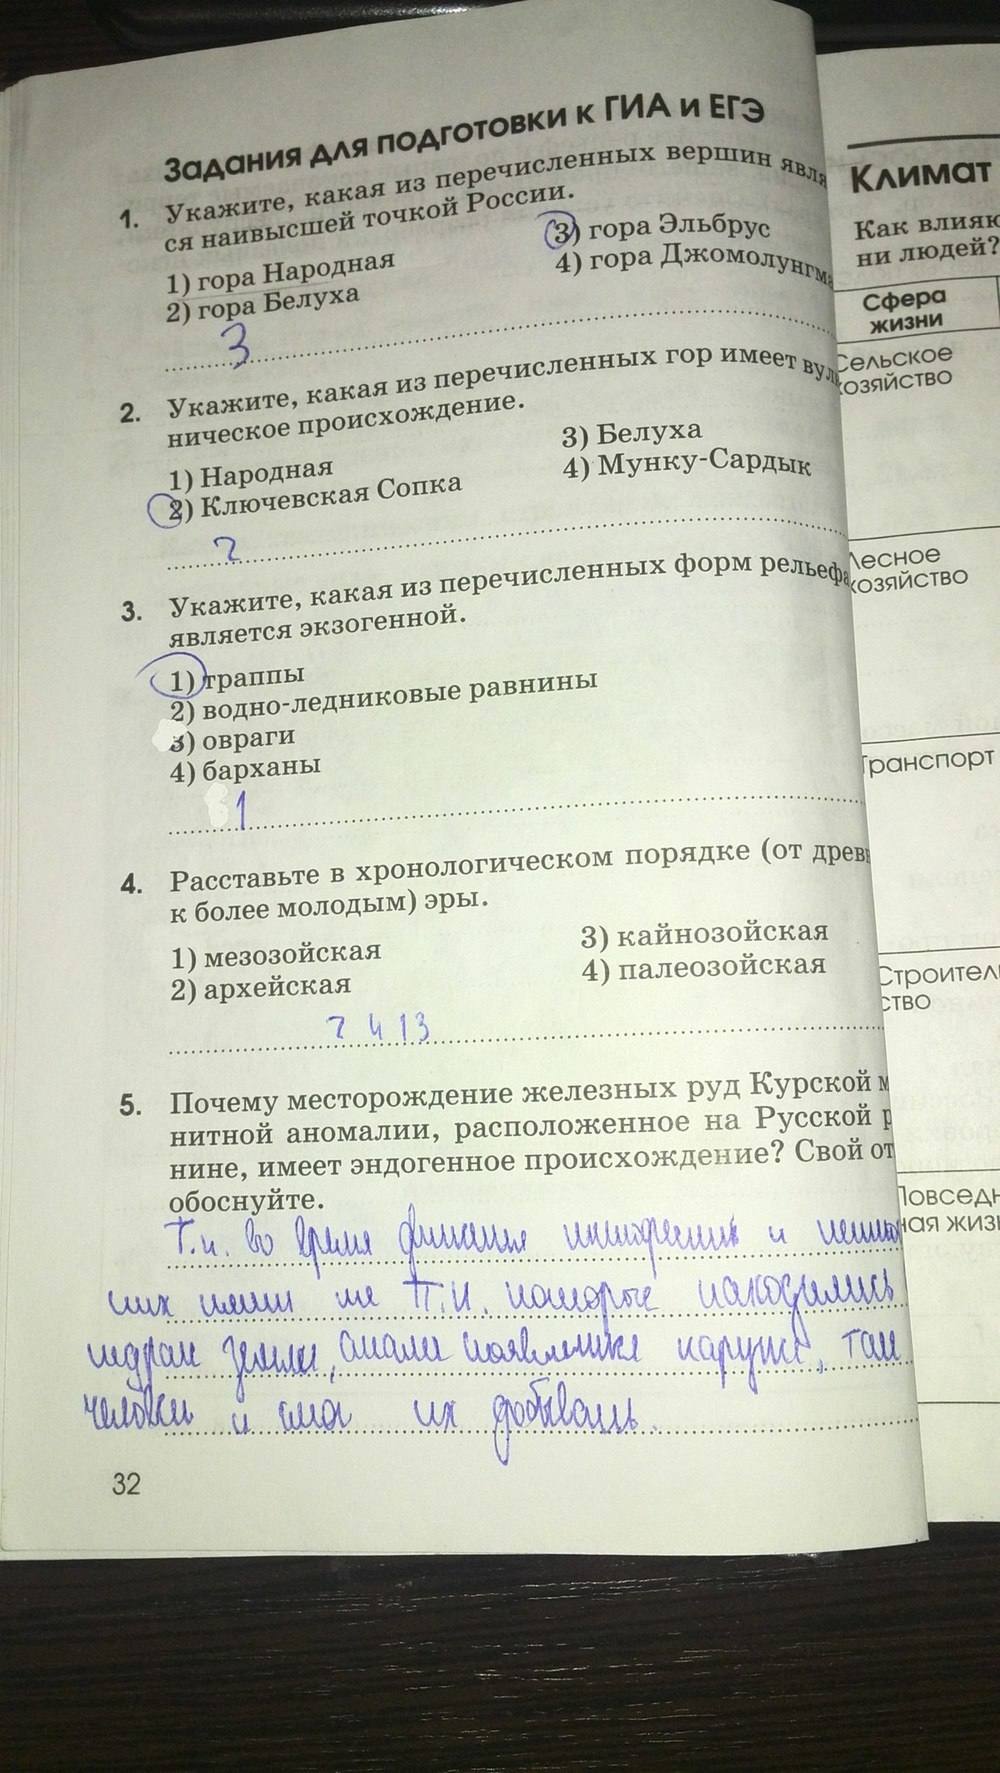 Задания для подготовки к ГИА и ЕГЭ
1. Укажите, какая из перечисленных вершин явля
ся наивысшей точкой России.
1) гора Народная
2) гора Белуха
3) гора Эльбрус
4) гора Джомолунгма
3
2. Укажите, какая из перечисленных гор имеет вул
ническое происхождение.
1) Народная
2) Ключевская Сопка
3) Белуха
4) Мунку-Сардык
2
3. Укажите, какая из перечисленных форм рельефа
является экзогенной.
1) траппы
2) водно-ледниковые равнины
3) овраги
4) барханы
1
4. Расставьте в хронологическом порядке (от древн
к более молодым) эры.
1) мезозойская
2) архейская
3) кайнозойская
4) палеозойская
2 4 1 3
5. Почему месторождение железных руд Курской м
нитной аномалии, расположенное на Русской р
нине, имеет эндогенное происхождение? Свой от
обоснуйте.
Т.к. во время движения и
П.И. которые находились
недрах земли, стали наружи, там
человек и смог их добывать.
32
Климат
Как влияю
ни людей?
Сфера
жизни
Сельское
хозяйство
Лесное
хозяйство
Транспорт
Строитель
ство
Повседн
ная жизн